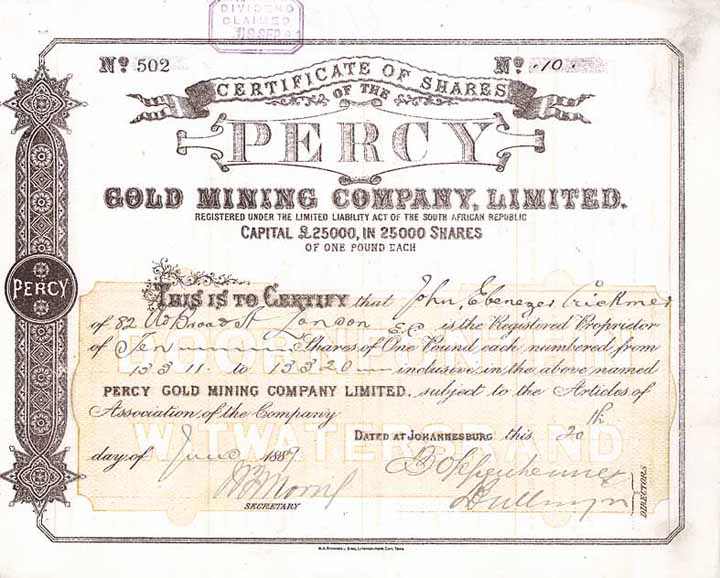 DIVIDEND
CLAIMED
Nº 502
Nº 10
CERTIFICATE OF SHARES
OF THE
PERCY
GOLD MINING COMPANY, LIMITED.
REGISTERED UNDER THE LIMITED LIABILITY ACT OF THE SOUTH AFRICAN REPUBLIC
CAPITAL £25000, IN 25000 SHARES
OF ONE POUND EACH
PERCY
THIS IS TO CERTIFY that John Ebenezer
of 82 Old Broad St London E.C. is the Registered Proprietor
of Ten Shares of One Pound each numbered from
13311 to 13320 inclusive in the above named
PERCY GOLD MINING COMPANY LIMITED, subject to the Articles of
Association of the Company
WITWATERSRAND
DATED AT JOHANNESBURG this 20th
day of June 1889
SECRETARY
DIRECTORS